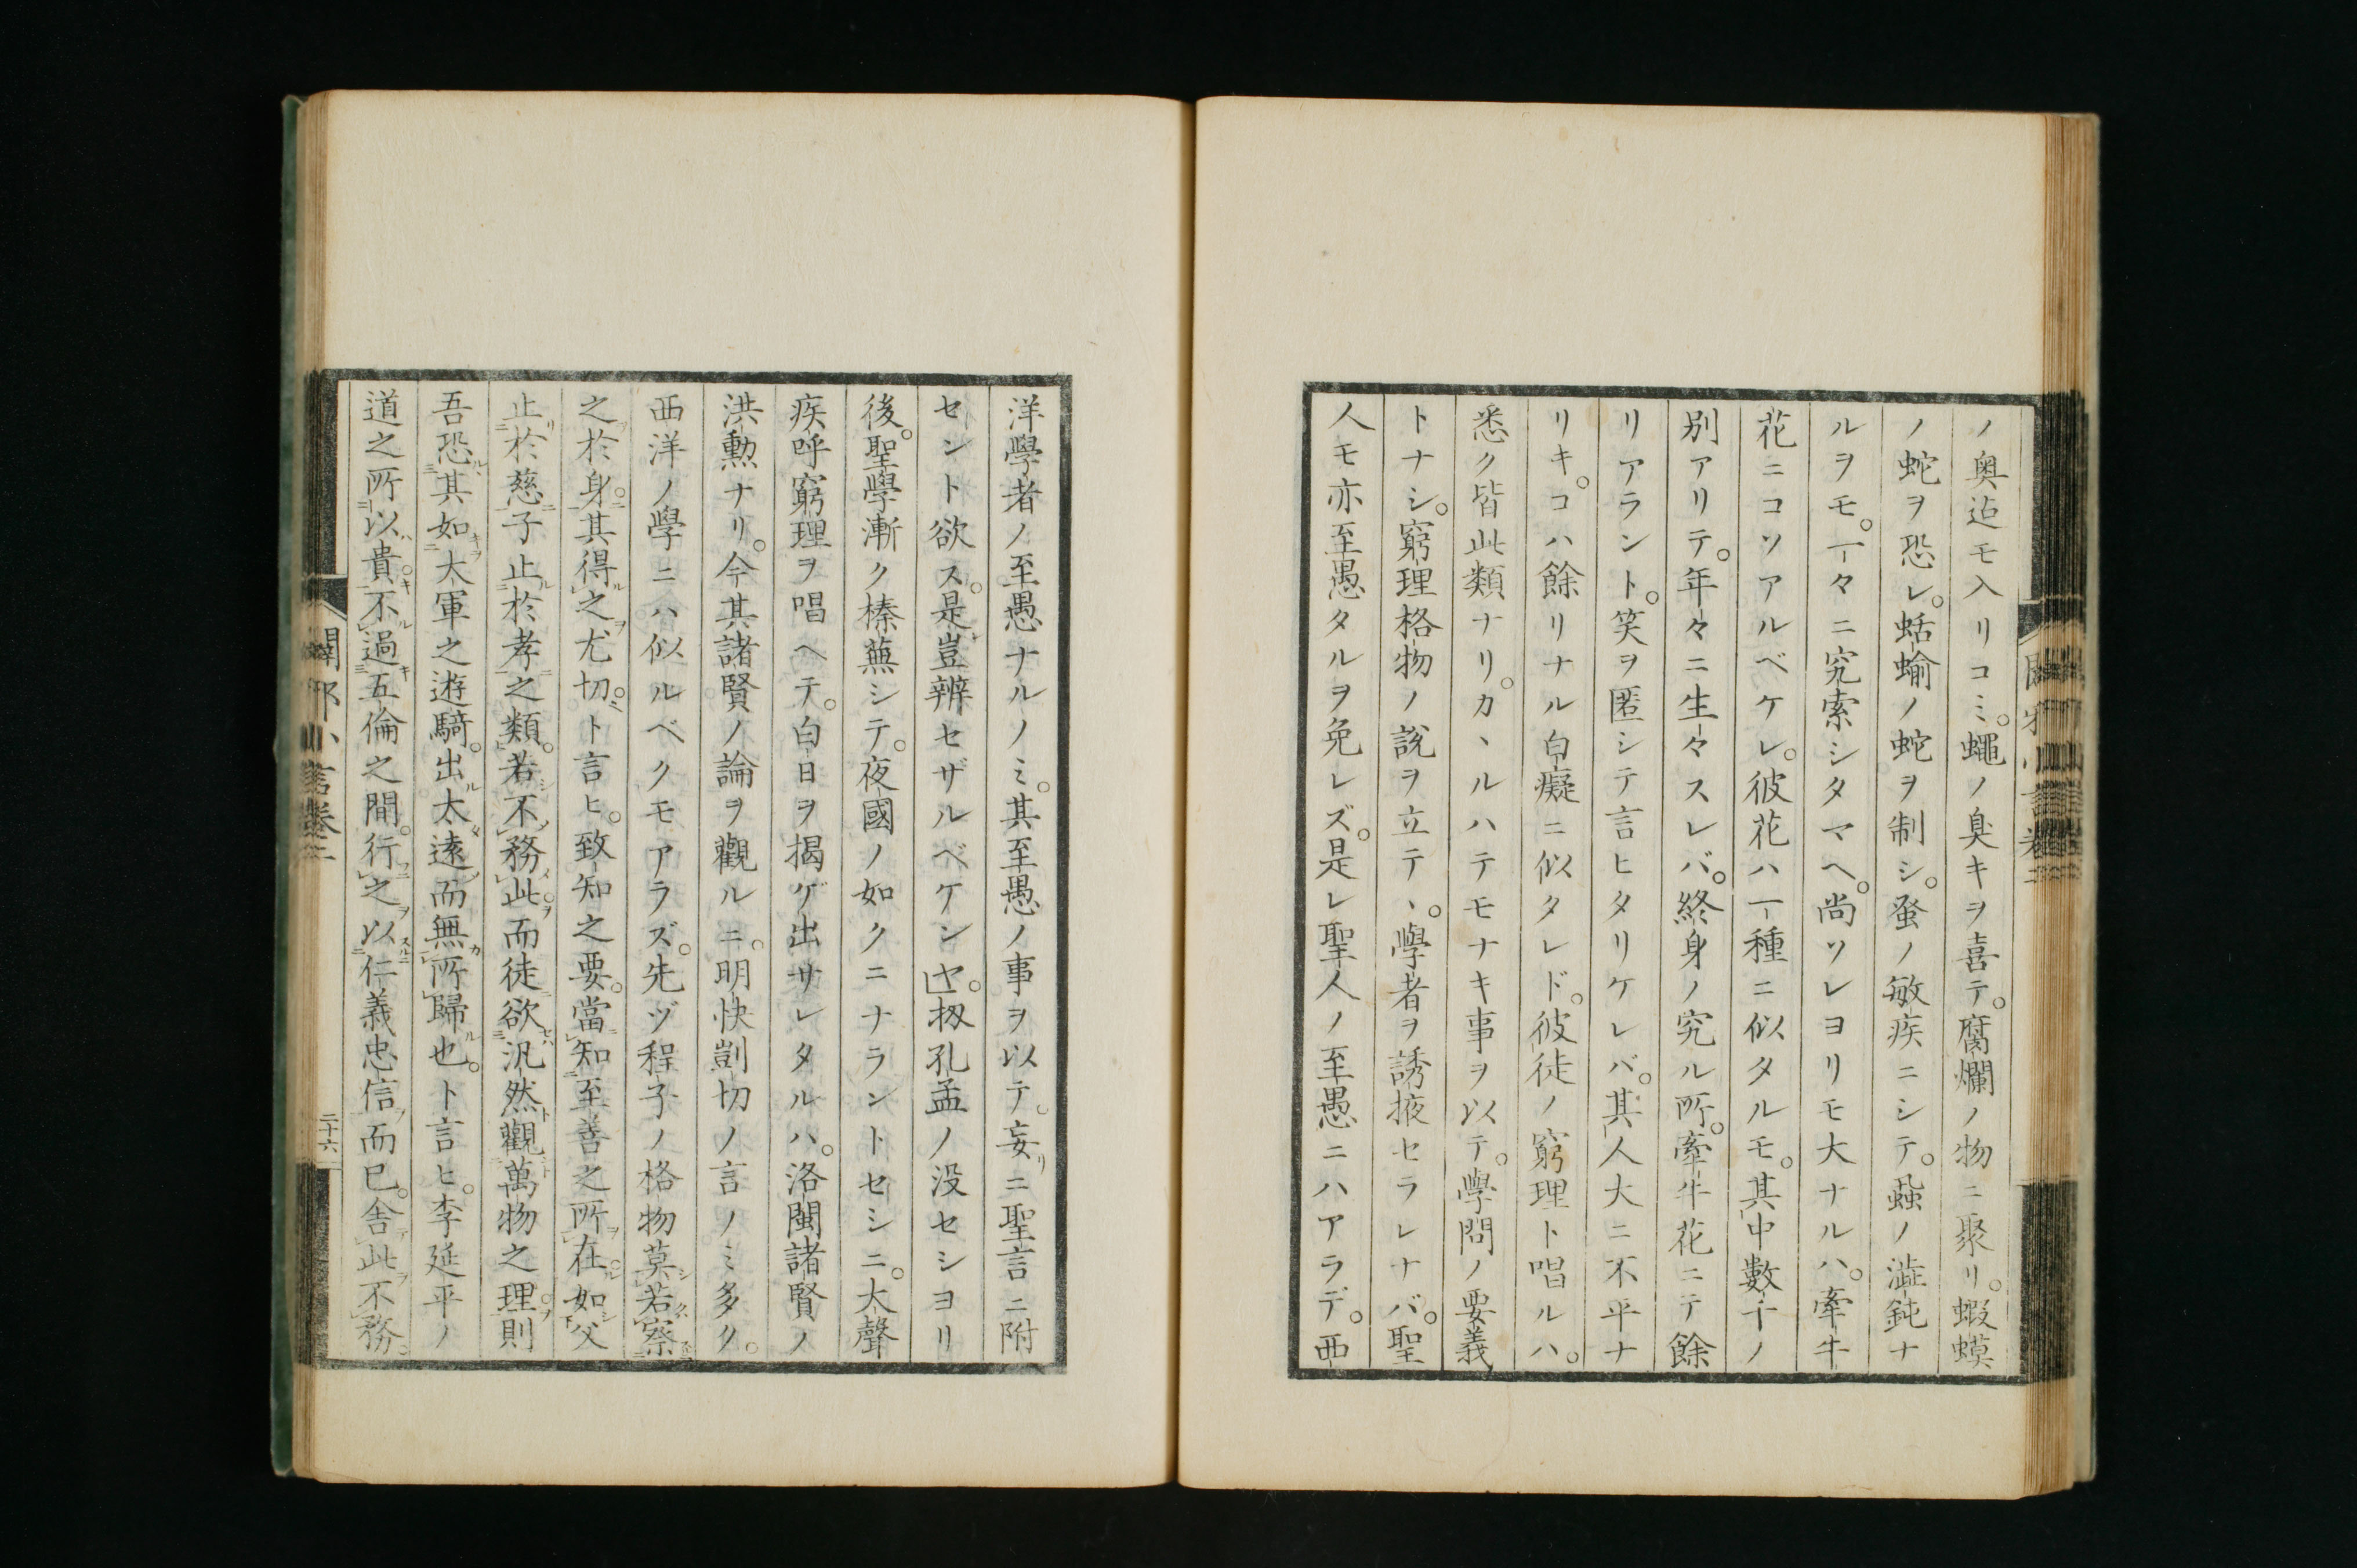 ノ奥迠モ入リコミ。蠅ノ臭キヲ喜テ。腐爛ノ物ニ聚リ。蝦蟆
ノ蛇ヲ恐レ。蛞蝓ノ蛇ヲ制シ。蚤ノ敏疾ニシテ。蝨ノ澁鈍ナ
ルヲモ。一々ニ究索シタマヘ。尚ソレヨリモ大ナルハ。牽牛
花ニコソアルベケレ。彼花ハ一種ニ似タルモ。其中數千ノ
別アリテ。年々ニ生々スレバ。終身ノ究ル所。牽牛花ニテ餘
リアラント。笑ヲ匿シテ言ヒタリケレバ。其人大ニ不平ナ
リキ。コハ餘リナル白癡ニ似タレド。彼徒ノ窮理ト唱ルハ。
悉ク皆此類ナリ。カヽルハテモナキ事ヲ以テ。學問ノ要義
トナシ。窮理格物ノ說ヲ立テヽ。學者ヲ誘掖セラレナバ。聖
人モ亦至愚タルヲ免レズ。是レ聖人ノ至愚ニハアラデ。西
洋學者ノ至愚ナルノミ。其至愚ノ事ヲ以テ。妄リニ聖言ニ附
セント欲ス。是豈辨セザルベケンヤ。扨孔孟ノ没セシヨリ
後。聖學漸ク榛蕪シテ。夜國ノ如クニナラントセシニ。大聲
疾呼窮理ヲ唱ヘテ。白日ヲ揭ゲ出サレタルハ。洛閩諸賢ノ
洪勲ナリ。今其諸賢ノ論ヲ觀ルニ。明快剴切ノ言ノミ多ク。
西洋ノ學ニハ似ルベクモアラズ。先ヅ程子ノ格物莫若察
之於身。其得之尤切。ト言ヒ。致知之要。當知至善之所在。如父
止於慈子止於孝之類。若不務此而徒欲汎然觀萬物之理。則
吾恐其如大軍之遊騎。出太遠而無所歸也。ト言ヒ。李延平ノ
道之所以貴。不過五倫之間。行之以仁義忠信而已。舍此不務
闢邪小言卷二
二十六